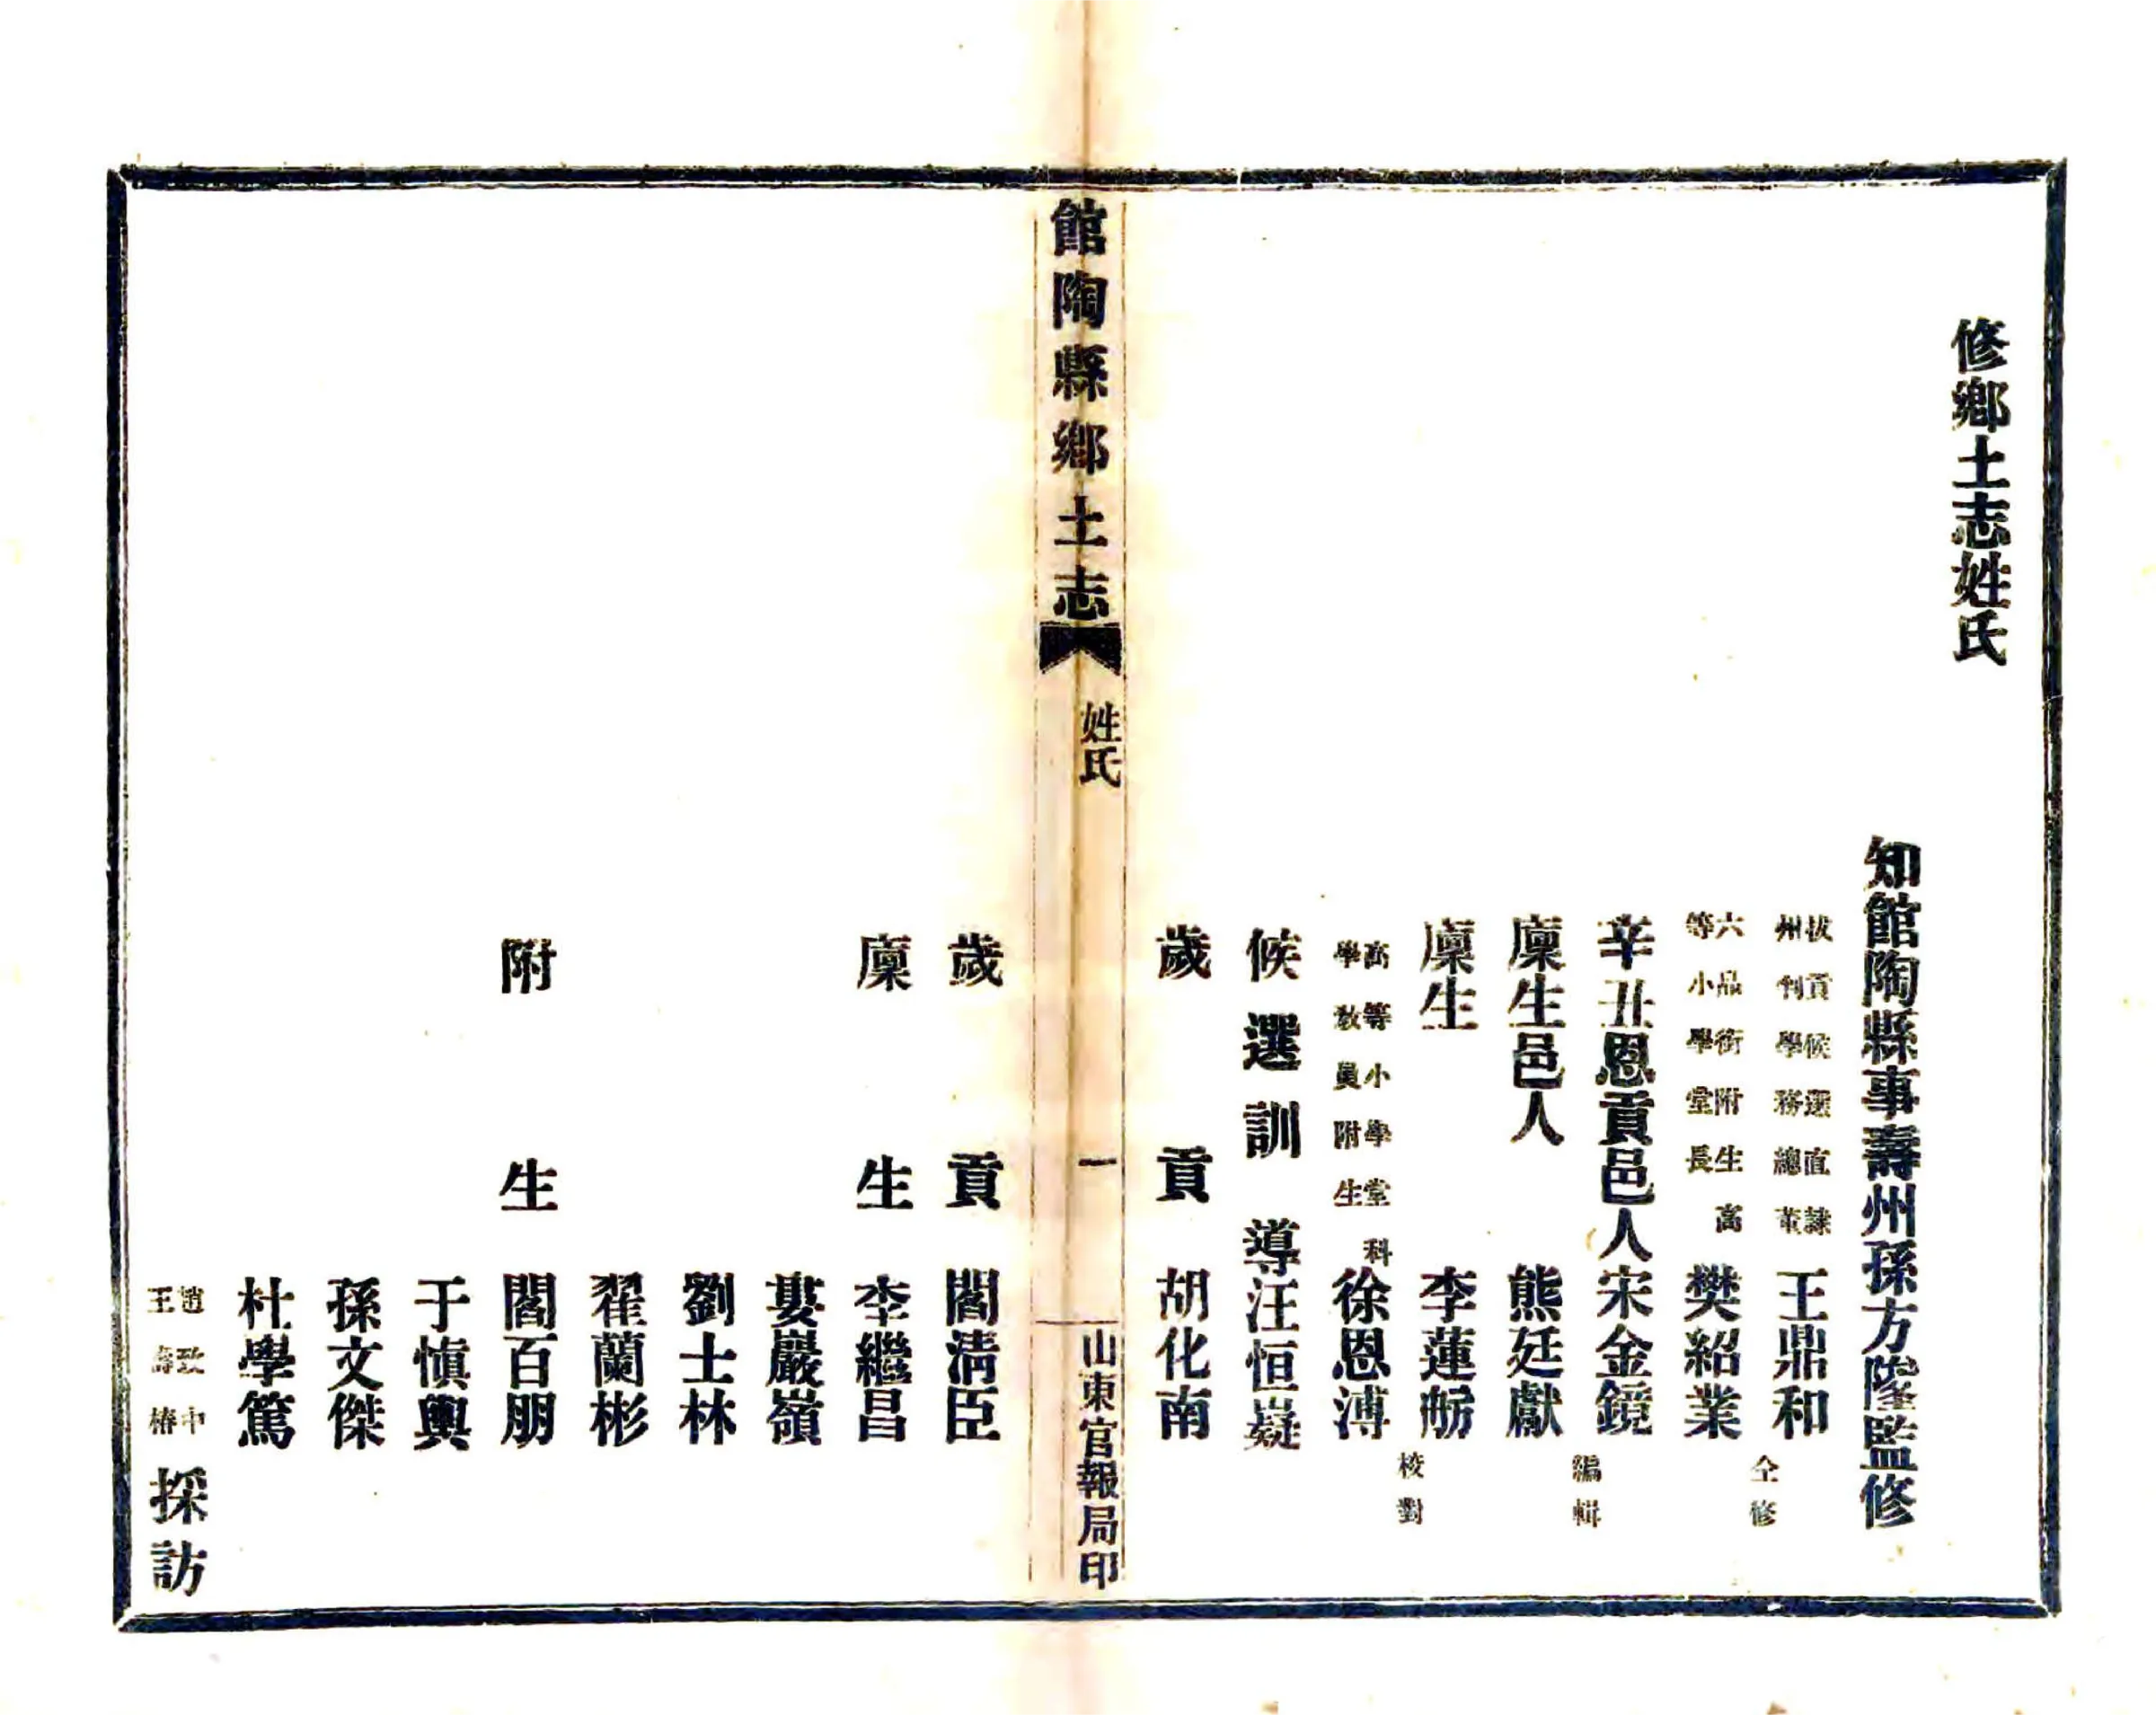 修鄉土志姓氏
知館陶縣事壽州孫方隆監修
拔貢候選直隸
州判學務總董
王鼎和
六品銜附生高
等小學堂長
樊紹業
仝修
辛丑恩貢邑人宋金鏡
廩生邑人熊廷獻
編輯
廩生李蓮舫
高等小學堂科
學教員附生
徐恩溥
校對
候選訓導汪恒嶷
歲貢胡化南
館陶縣鄉土志
姓氏
一
山東官報局印
歲貢閻清臣
廩生李繼昌
婁巖嶺
劉士林
翟蘭彬
附生閻百朋
于慎輿
孫文傑
杜學篤
趙致中
王壽椿
採訪